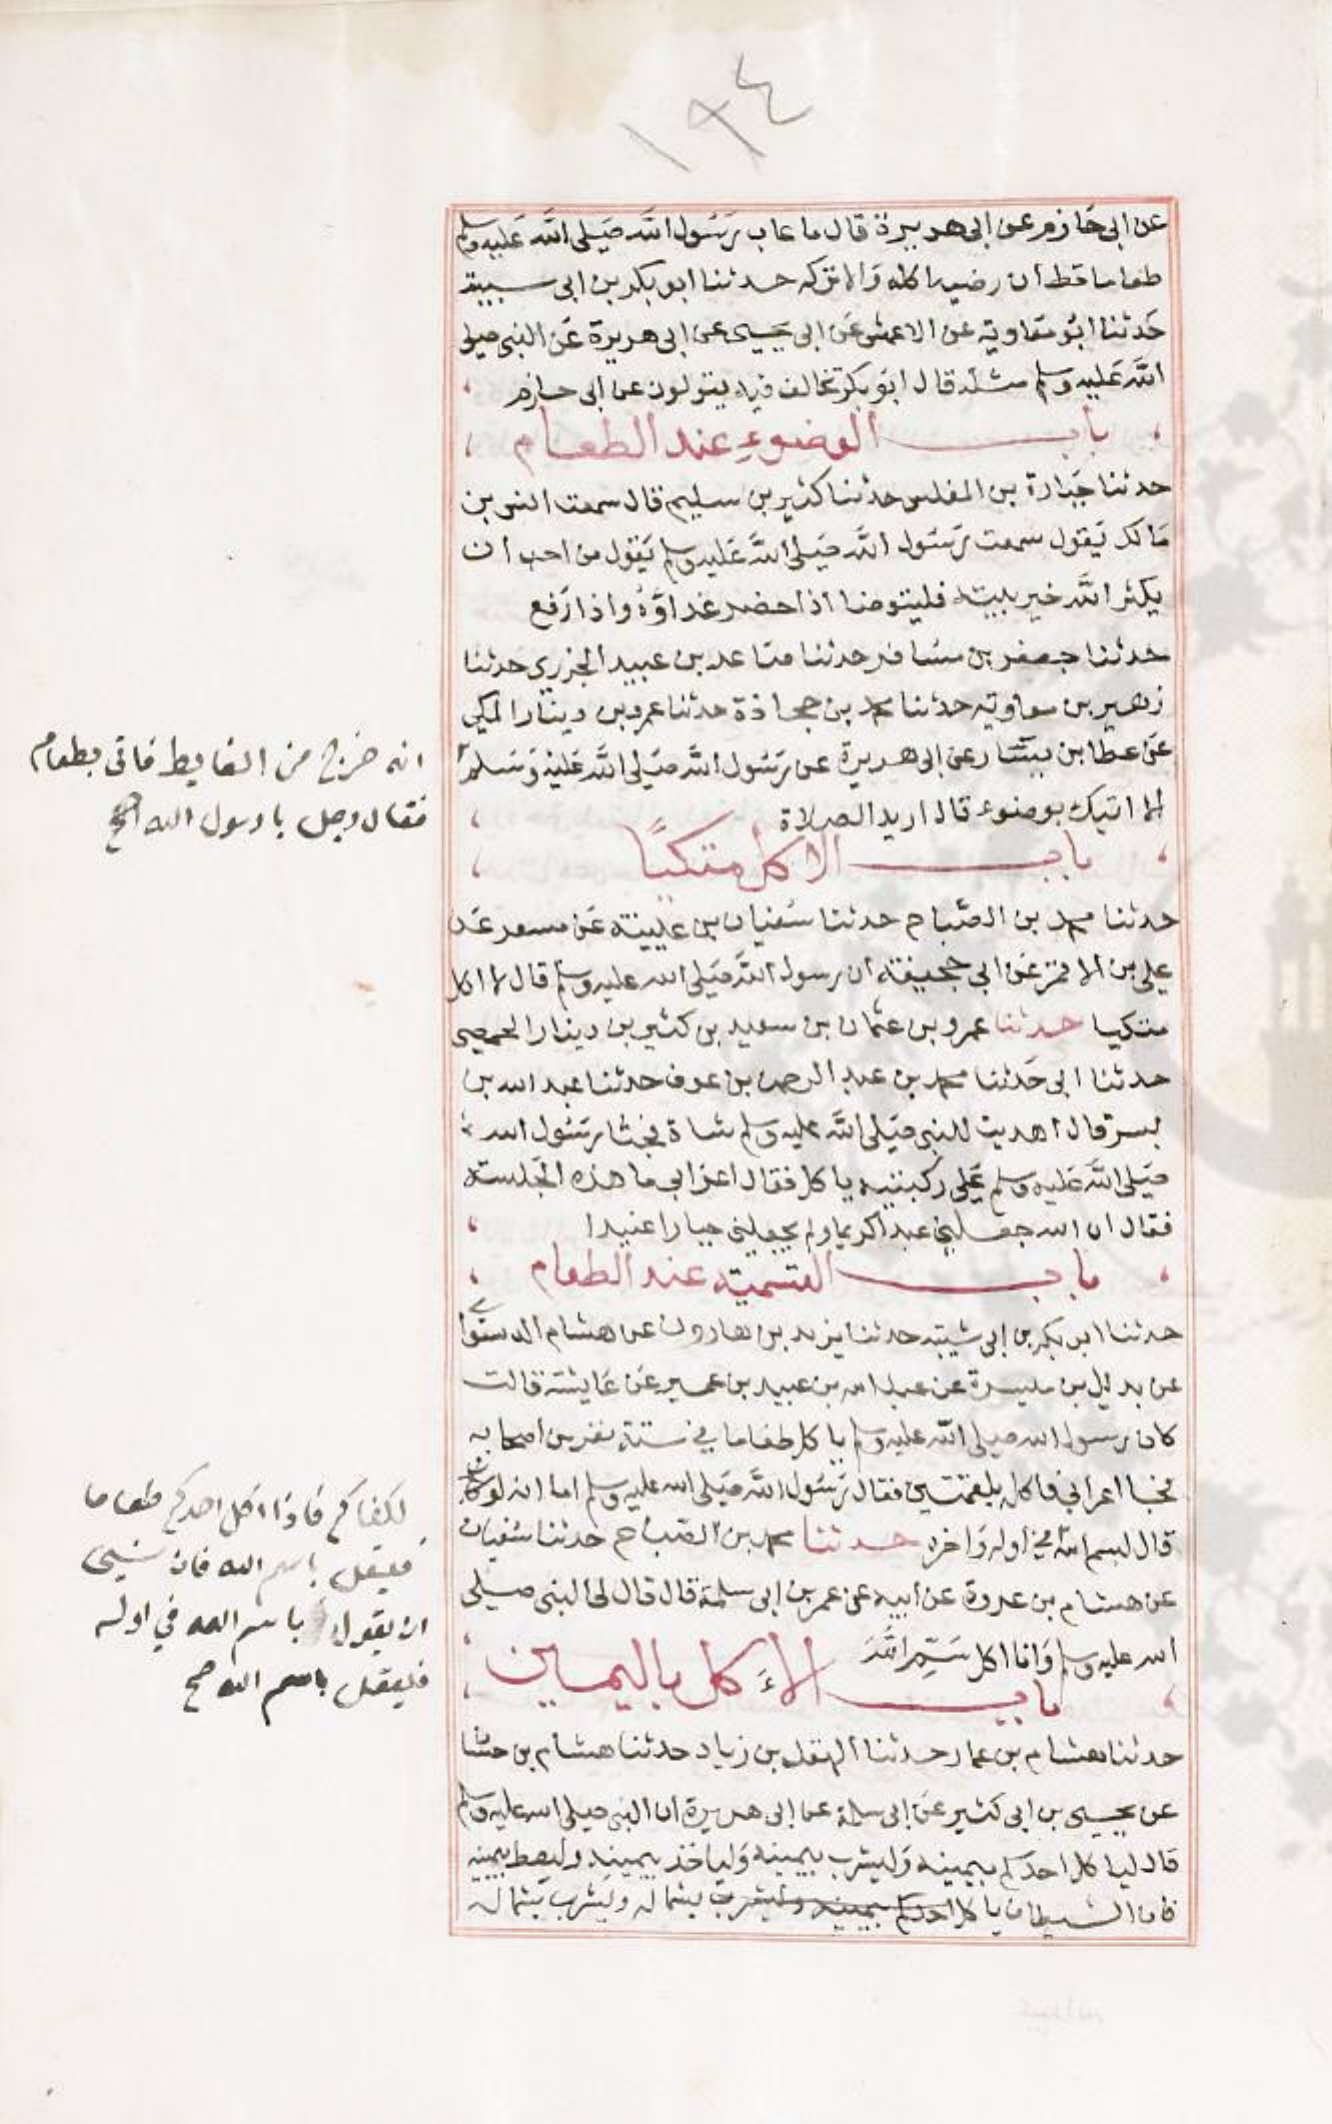 ١٩٤
عن ابي حازم عن ابي هريرة قال ما عاب رسول الله صلى الله عليه وسلم
طعاما قط ان رضيه اكله والا تركه حدثنا ابو بكر بن ابي شيبة
حدثنا ابو معاوية عن الاعمش عن ابي يحيى عن ابي هريرة عن النبي صلى
الله عليه وسلم مثله قال ابو بكر نخالف فيه يقولون عن ابي حازم
باب الوضوء عند الطعام
حدثنا جبارة بن المغلس حدثنا كثير بن سليم قال سمعت انس بن
مالك يقول سمعت رسول الله صلى الله عليه وسلم يقول من احب ان
يكثر الله خير بيته فليتوضا اذا حضر غداؤه واذا رفع
حدثنا جعفر بن مسافر حدثنا صاعد بن عبيد الجزري حدثنا
زهير بن معاوية حدثنا محمد بن جحادة حدثنا عمرو بن دينار المكي
عن عطا بن يسار عن ابي هريرة عن رسول الله صلى الله عليه وسلم
انه خرج من الغايط فاتى بطعام
فقال رجل يا رسول الله صح
الا اتيك بوضوء قال اريد الصلاة
باب الاكل متكيًا
حدثنا محمد بن الصباح حدثنا سفيان بن عيينة عن مسعر عن
علي بن الاقمر عن ابي جحيفة ان رسول الله صلى الله عليه وسلم قال لا اكل
متكيا حدثنا عمرو بن عثمان بن سعيد بن كثير بن دينار الحمصي
حدثنا ابي حدثنا محمد بن عبد الرحمن بن عوف حدثنا عبد الله بن
بسر قال اهديت للنبي صلى الله عليه وسلم شاة فجثا رسول الله
صلى الله عليه وسلم على ركبتيه ياكل فقال اعرابي ما هذه الجلسة
فقال ان الله جعلني عبدا كريما ولم يجعلني جبارا عنيدا
باب التسمية عند الطعام
حدثنا ابو بكر بن ابي شيبة حدثنا يزيد بن هارون عن هشام الدستوايى
عن بديل بن ميسرة عن عبد الله بن عبيد بن عمير عن عايشة قالت
كان رسول الله صلى الله عليه وسلم ياكل طعاما في ستة نفر من اصحابه
فجا اعرابي فاكله بلقمتين فقال رسول الله صلى الله عليه وسلم اما انه لو كان
قال بسم الله في اوله واخره حدثنا محمد بن الصباح حدثنا سفيان
لكفاكم فاذا اكل احدكم طعاما
فليقل باسم الله فان نسي
ان يقول باسم الله في اوله
فليقل باسم الله صح
عن هشام بن عروة عن ابيه عن عمر بن ابي سلمة قال قال لي النبي صلى
الله عليه وسلم وانا اكل سَمِّ الله
باب الأكل باليمين
حدثنا هشام بن عمار حدثنا الهقل بن زياد حدثنا هشام بن حسا
عن يحيى بن ابي كثير عن ابي سلمة عن ابي هريرة ان النبي صلى الله عليه وسلم
قال لياكل احدكم بيمينه وليشرب بيمينه ولياخذ بيمينه وليعط بيمينه
فان الشيطان ياكل احدكم بيمينه وليشرب بشماله ويشرب بشماله